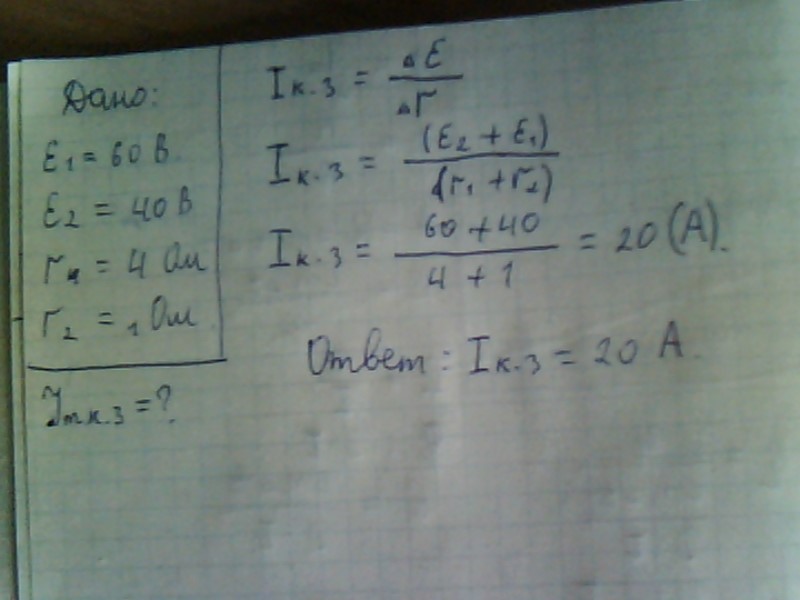 Дано:
E₁ = 60 В
E₂ = 40 В
r₁ = 4 Ом
r₂ = 1 Ом
Iт к.з = ?
Iк.з = ΔE / Δr
Iк.з = (E₂ + E₁) / (r₁ + r₂)
Iк.з = 60 + 40 / 4 + 1 = 20 (А).
Ответ: Iк.з = 20 А.